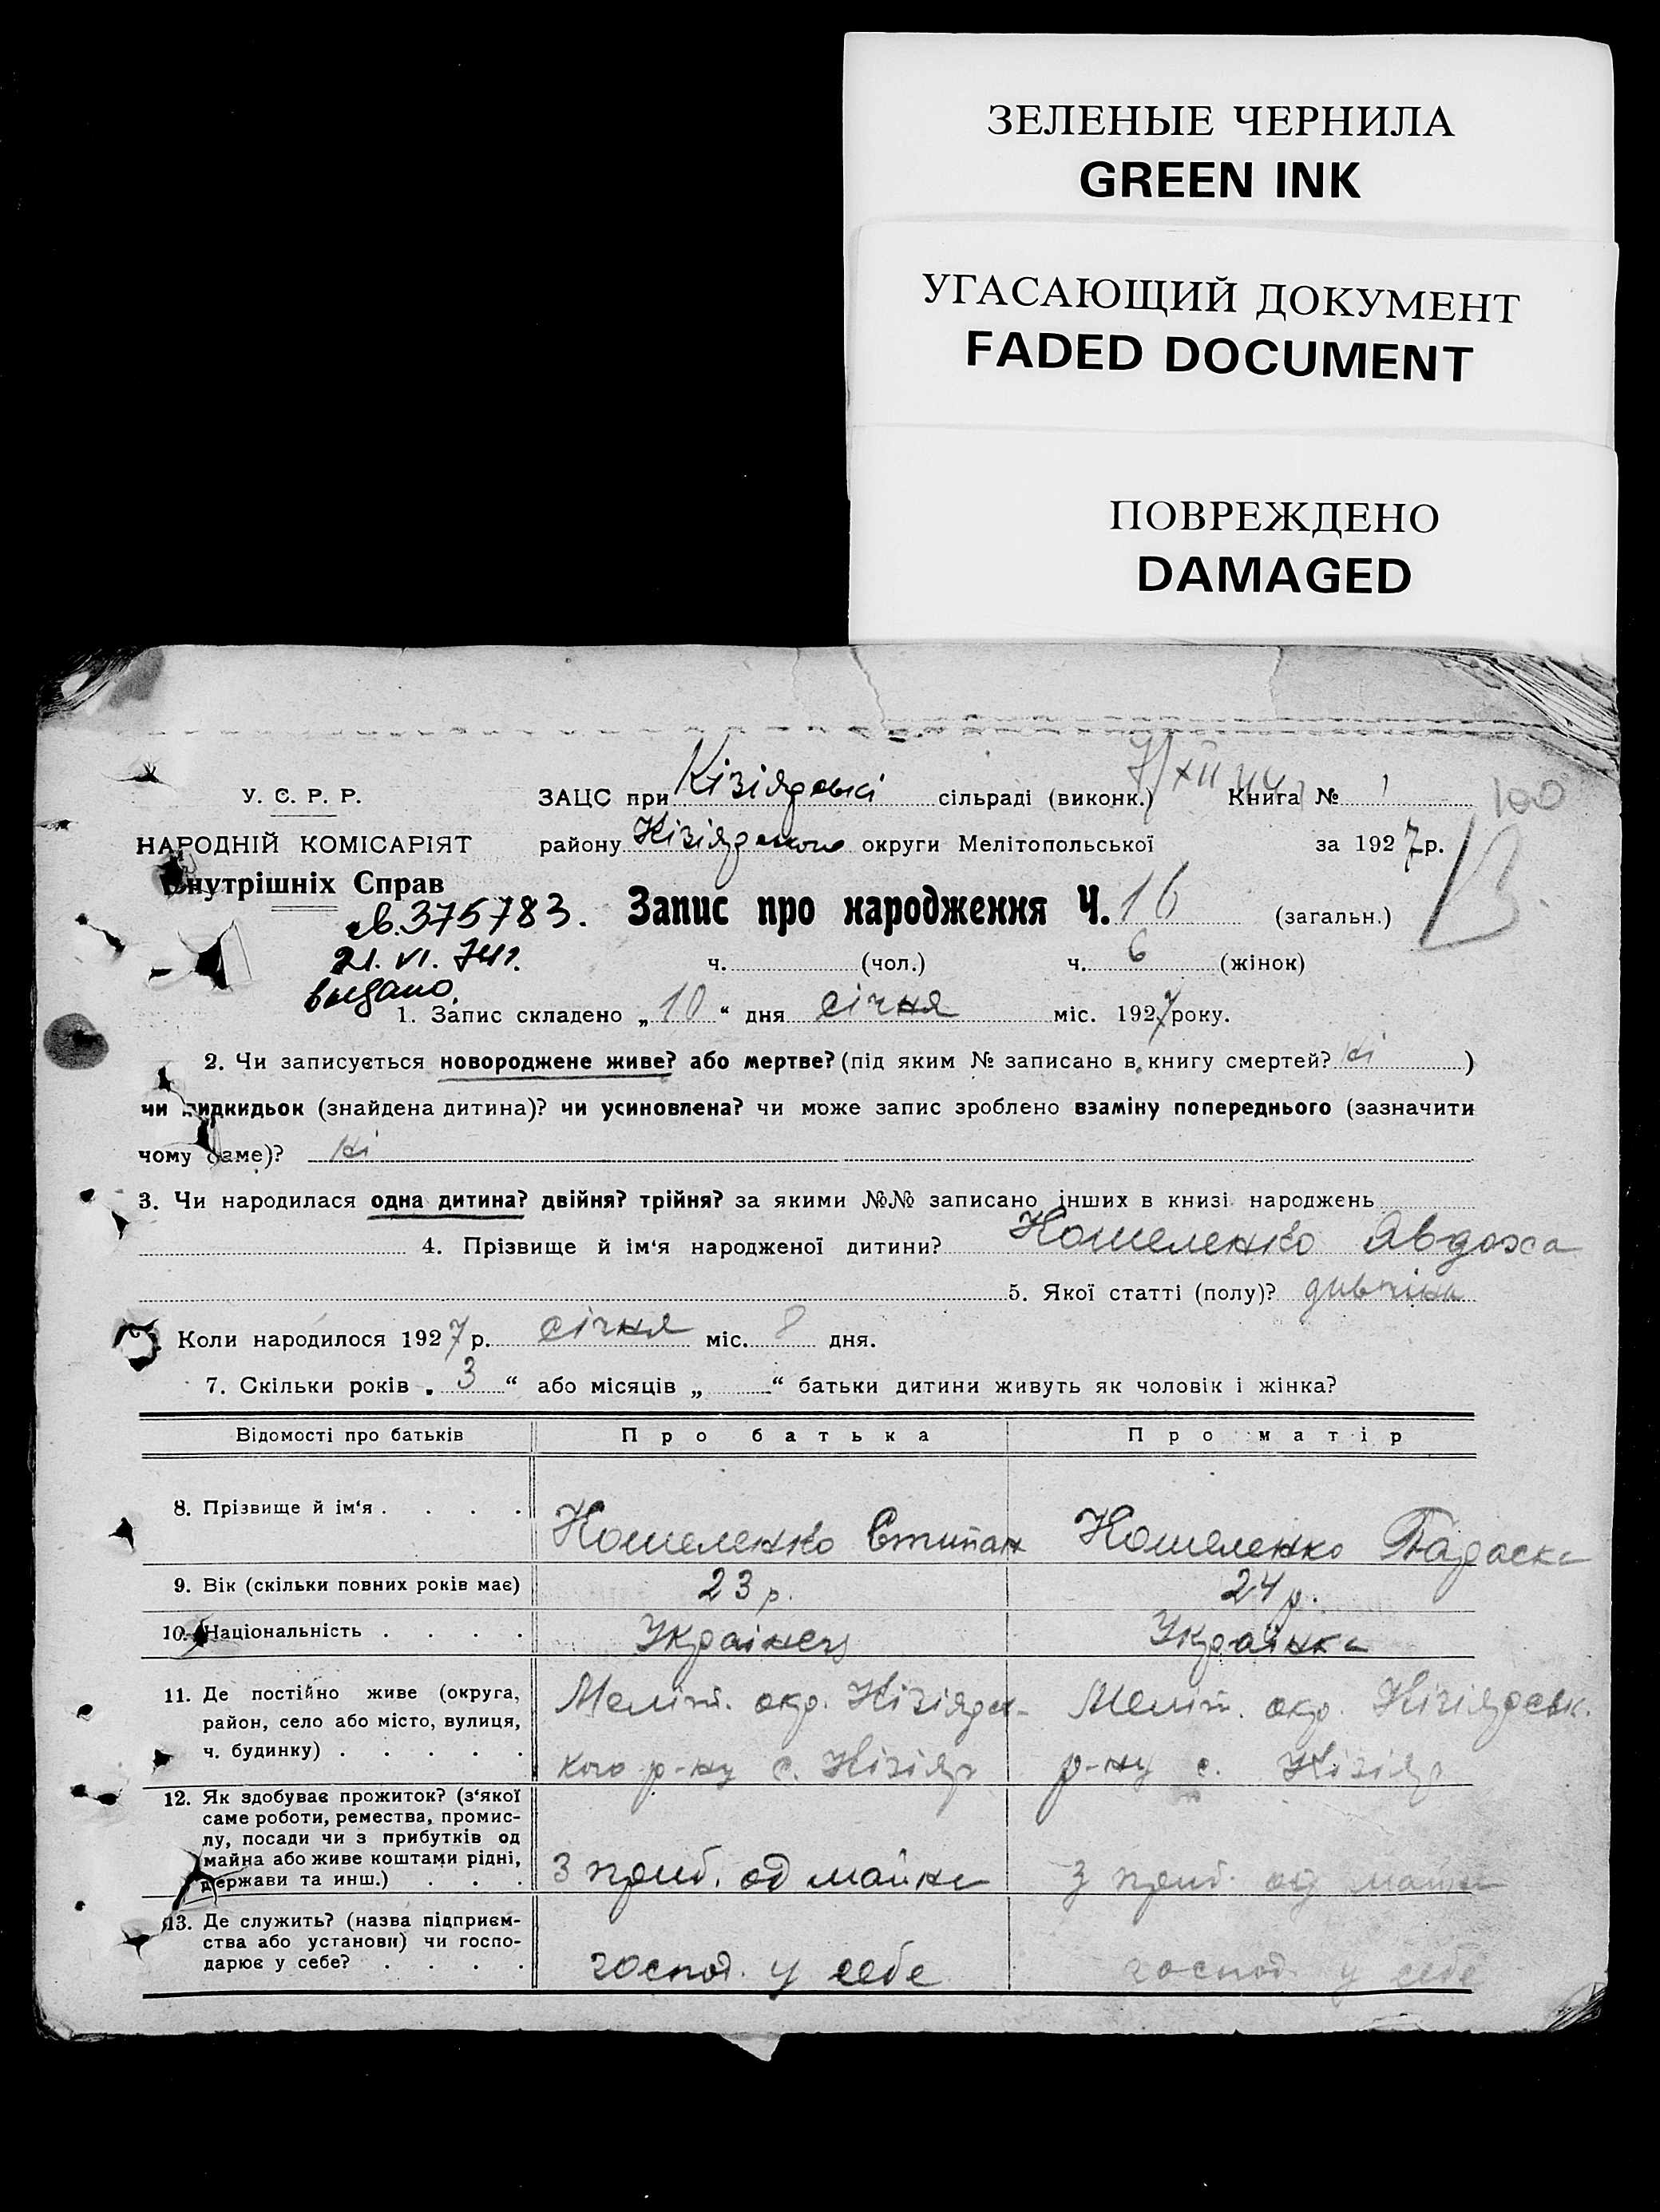 ЗЕЛЕНЫЕ ЧЕРНИЛА
GREEN INK
УГАСАЮЩИЙ ДОКУМЕНТ
FADED DOCUMENT
ПОВРЕЖДЕНО
DAMAGED
У. Є. Р. Р.
НАРОДНІЙ КОМІСАРІЯТ
Внутрішніх Справ
ЗАЦС при Кізіярській сільраді (виконк.) Книга № 1
100
району Кізіярського округи Мелітопольської за 1927 р.
св. 375783.
21. VI. 741.
выдано.
Запис про народження Ч. 16 (загальн.)
ч. (чол.) ч. 6 (жінок)
1. Запис складено „10“ дня січня міс. 1927 року.
2. Чи записується новороджене живе? або мертве? (під яким № записано в книгу смертей? ні )
чи пидкидьок (знайдена дитина)? чи усиновлена? чи може запис зроблено взаміну попереднього (зазначити
чому саме)? ні
3. Чи народилася одна дитина? двійня? трійня? за якими №№ записано інших в книзі народжень
4. Прізвище й ім‘я народженої дитини? Кошеленко Явдоха
5. Якої статті (полу)? дивчіна
Коли народилося 1927 р. січня міс. 8 дня.
7. Скільки років „3“ або місяців „ “ батьки дитини живуть як чоловік і жінка?
Відомості про батьків Про батька Про матір
8. Прізвище й ім‘я . . . . Кошеленко Стипан Кошеленко
9. Вік (скільки повних років має) 23 р. 24 р.
10. Національність . . . . Українец Українка
11. Де постійно живе (округа, район, село або місто, вулиця, ч. будинку) . . . . .
Меліт. окр. Кізіярс-
кого р-ну с. Кізіяр
Меліт. окр. Кізіярськ.
р-ну с. Кізіяр
12. Як здобуває прожиток? (з‘якої
саме роботи, ремества, промис-
лу, посади чи з прибутків од
майна або живе коштами рідні,
держави та инш.) . . .
З приб. од майна
З приб. од майна
13. Де служить? (назва підприєм-
ства або установи) чи госпо-
дарює у себе? . . . .
господ. у себе
господ. у себе